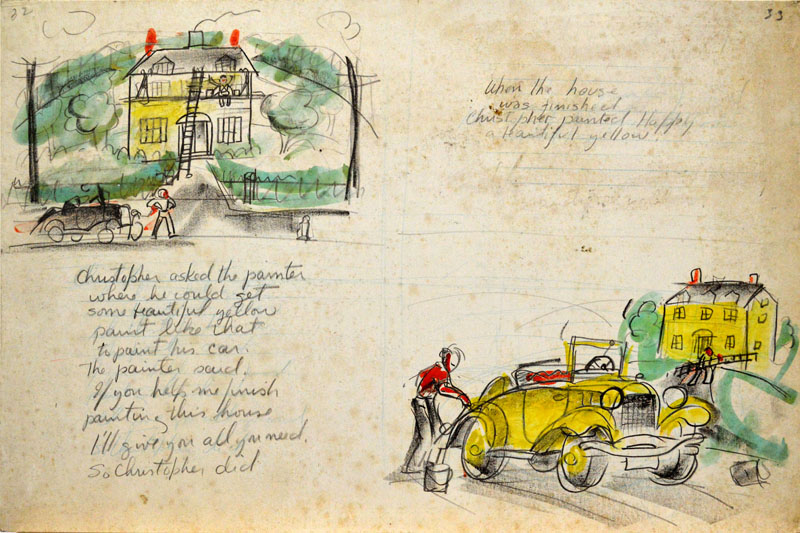 32
33
Christopher asked the painter
where he could get
some beautiful yellow
paint like that
to paint his car.
The painter said.
If you help me finish
painting this house
I'll give you all you need.
So Christopher did
When the house
was finished
Christopher painted Happy
a beautiful yellow.